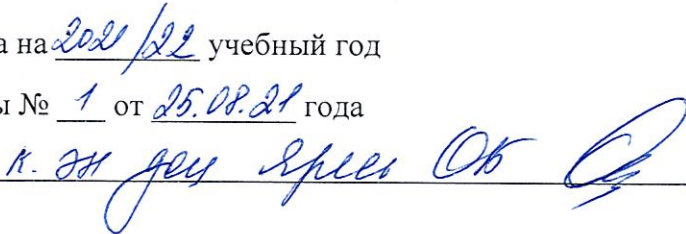 а на 2021/22 учебный год
ы № 1 от 25.08.21 года
к. эн доц ОБ